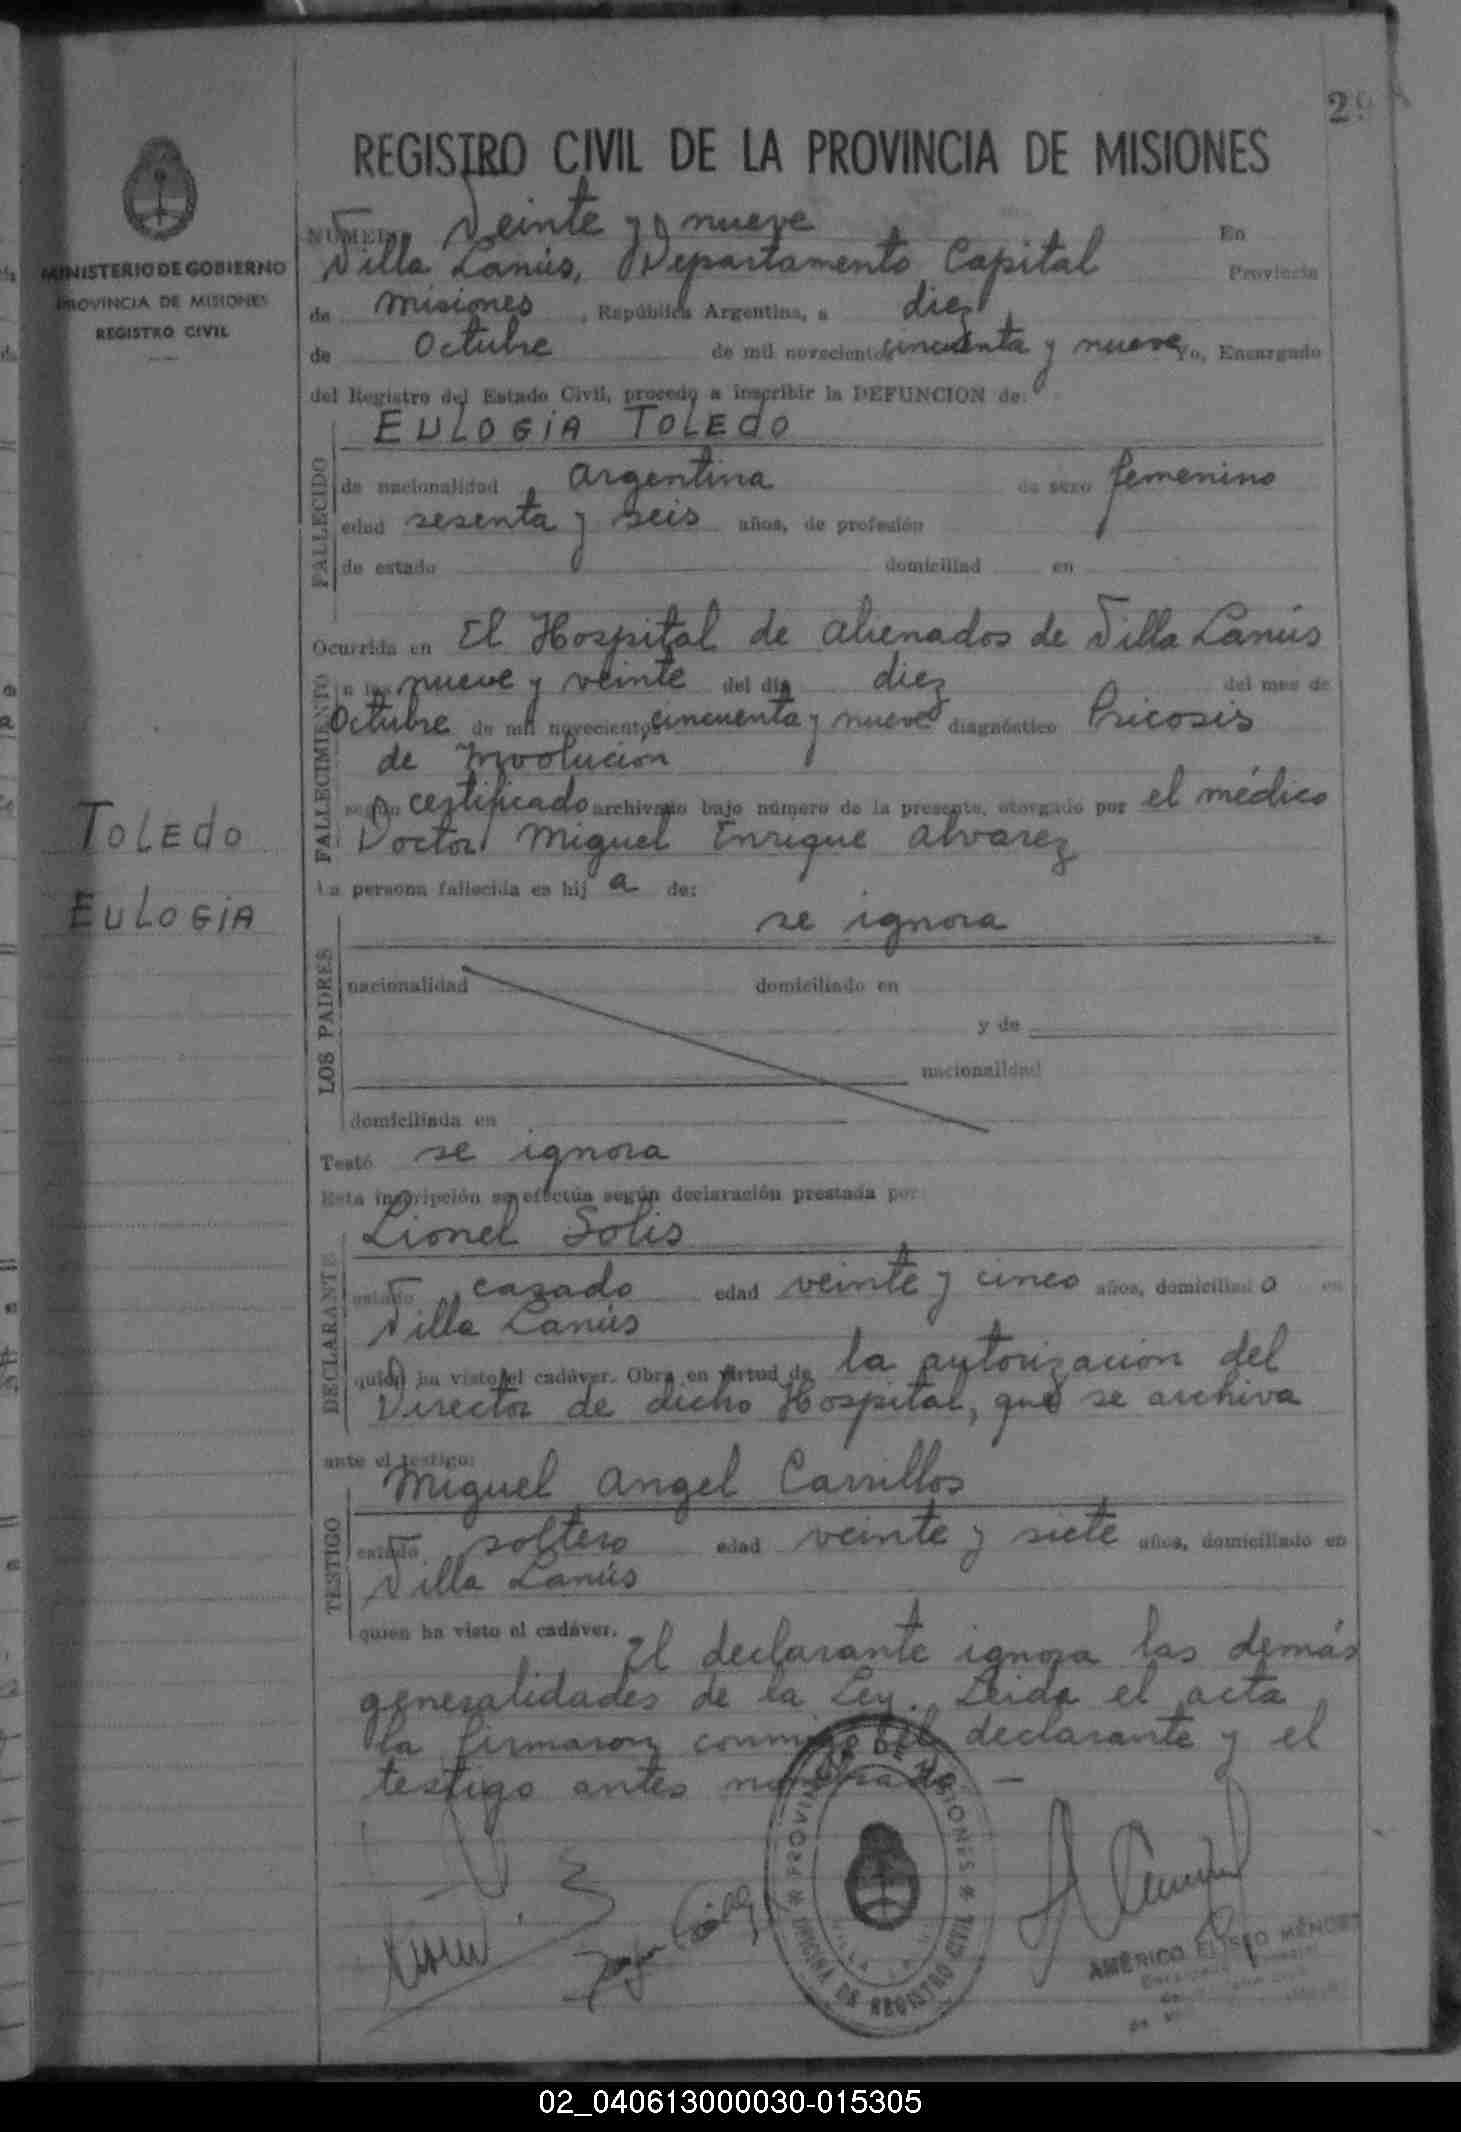 2
REGISTRO CIVIL DE LA PROVINCIA DE MISIONES
MINISTERIO DE GOBIERNO
PROVINCIA DE MISIONES
REGISTRO CIVIL
NÚMERO Veinte y nueve En
Villa Lanús, Departamento Capital Provincia
de Misiones, República Argentina, a diez
de Octubre de mil novecientos cincuenta y nueve Yo, Encargado
del Registro del Estado Civil, procedo a inscribir la DEFUNCION de:
EULOGIA TOLEDO
FALLECIDO
de nacionalidad Argentina de sexo femenino
edad sesenta y seis años, de profesión
de estado domiciliad en
Ocurrida en El Hospital de Alienados de Villa Lanús
FALLECIMIENTO
a las nueve y veinte del día diez del mes de
Octubre de mil novecientos cincuenta y nueve diagnóstico Psicosis
de Involución
según certificado archivado bajo número de la presente, otorgado por el médico
Doctor Miguel Enrique Alvarez
TOLEDO
EULOGIA
La persona fallecida es hij a de:
se ignora
LOS PADRES
nacionalidad domiciliado en
y de
nacionalidad
domiciliada en
Testó se ignora
Esta inscripción se efectúa según declaración prestada por:
Lionel Solis
DECLARANTE
estado casado edad veinte y cinco años, domiciliad o en
Villa Lanús
quien ha visto el cadáver. Obra en virtud de la autorización del
Director de dicho Hospital, que se archiva
ante el testigo:
Miguel Angel Carrillos
TESTIGO
estado soltero edad veinte y siete años, domiciliado en
Villa Lanús
quien ha visto el cadáver. El declarante ignora las demás
generalidades de la Ley. Leida el acta
la firmaron conmigo el declarante y el
testigo antes nombrado. —
PROVINCIA DE MISIONES * OFICINA DE REGISTRO CIVIL *
AMÉRICO ELISEO MÉNDEZ
02_040613000030-015305